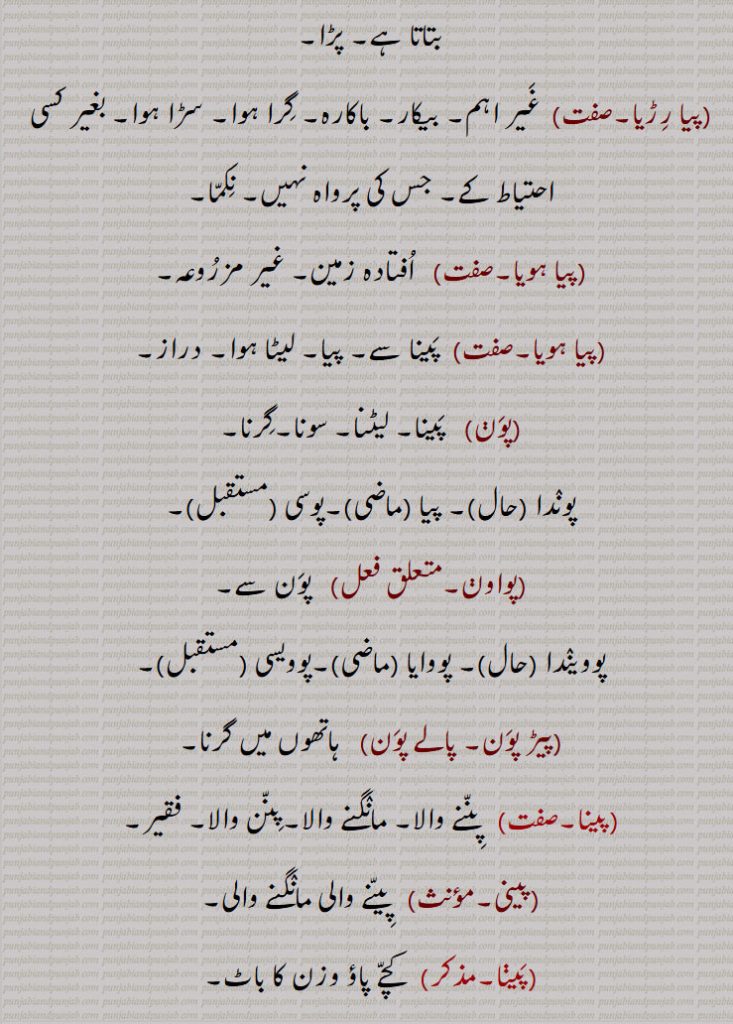 بتاتا ہے۔ پڑا۔
(پیا رِڑیا۔صفت) غَیر اہم۔ بیکار۔ باکارہ۔ گِرا ہوا۔ سڑا ہوا۔ بغیر کسی
احتیاط کے۔ جس کی پرواہ نہیں۔ نِکمّا۔
(پیا ہویا۔صفت) اُفتادہ زمین۔ غیر مزرُوعہ۔
(پیا ہویا۔صفت) پَینا سے۔ پیا۔ لیٹا ہوا۔ دراز۔
(پوَݨ) پَینا۔ لیٹنا۔ سونا۔گِرنا۔
پون٘دا (حال)۔ پیا (ماضی)۔پوسی (مستقبل)۔
(پواوݨ۔متعلق فعل) پوَن سے۔
پووین٘دا (حال)۔ پووایا (ماضی)۔پوویسی (مستقبل)۔
(پیڑ پوَن۔ پالے پوَن) ہاتھوں میں گرنا۔
(پینا۔صفت) پِنّنے والا۔ مان٘گنے والا۔پِنّن والا۔ فقیر۔
(پینی۔مؤنث) پِینّے والی مان٘گنے والی۔
(پَیتا۔مذکر) کچّے پاؤ وزن کا باٹ۔